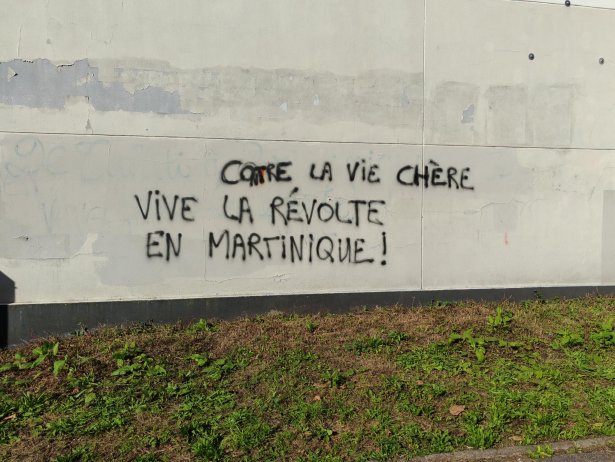 CONTRE LA VIE CHÈRE
VIVE LA RÉVOLTE
EN MARTINIQUE!